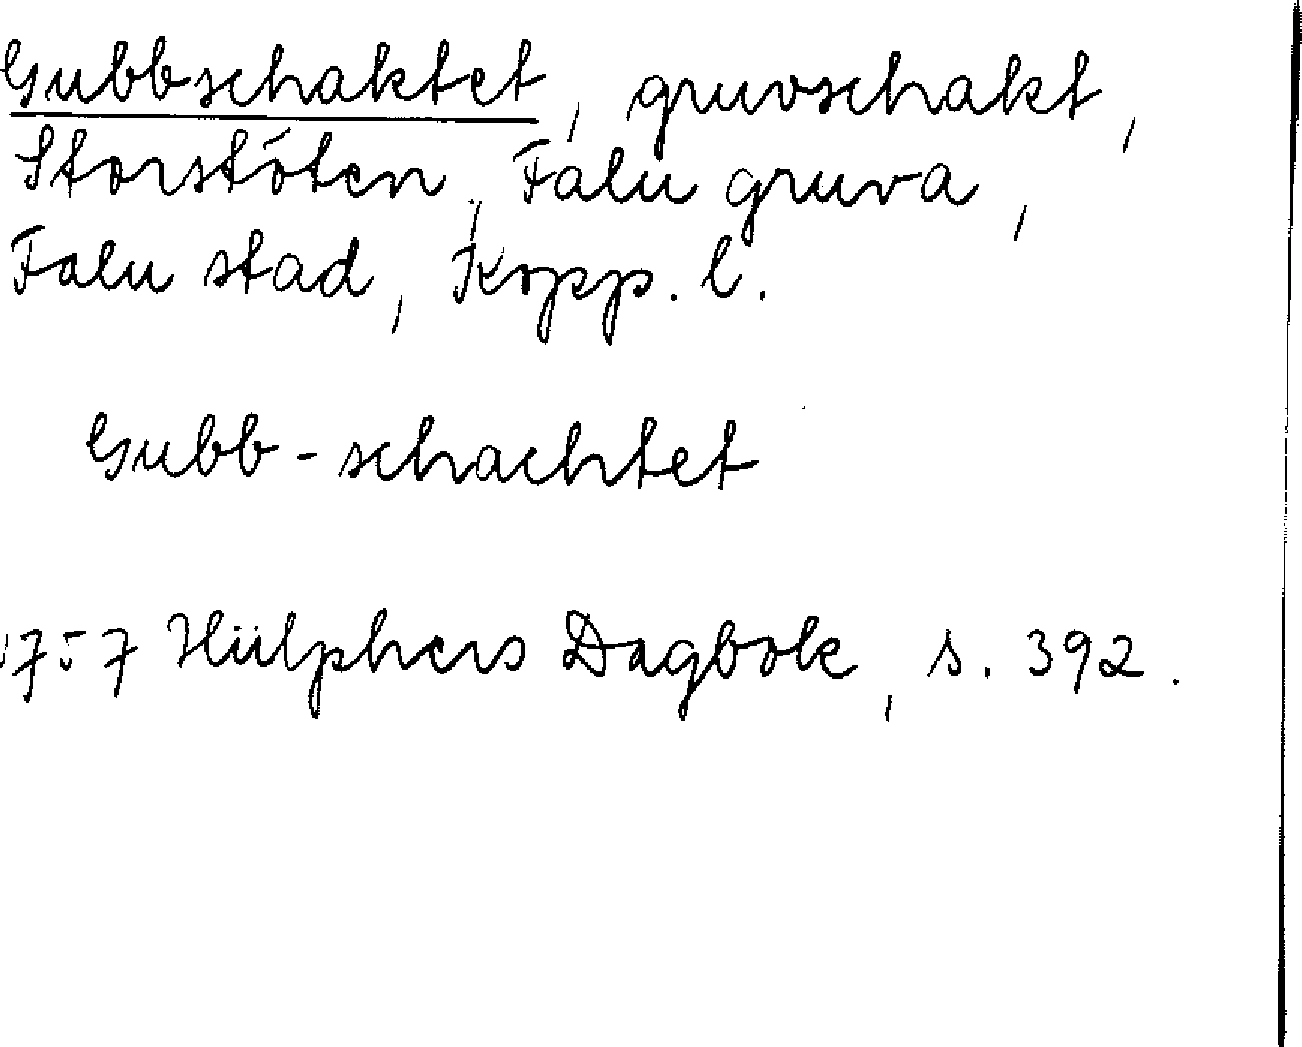 Gubbschaktet, gruvschakt,
Storstöten, Falu gruva,
Falu stad, Kopp. l.
Gubb-schachtet
1757 Hülphers Dagbok, s. 392.